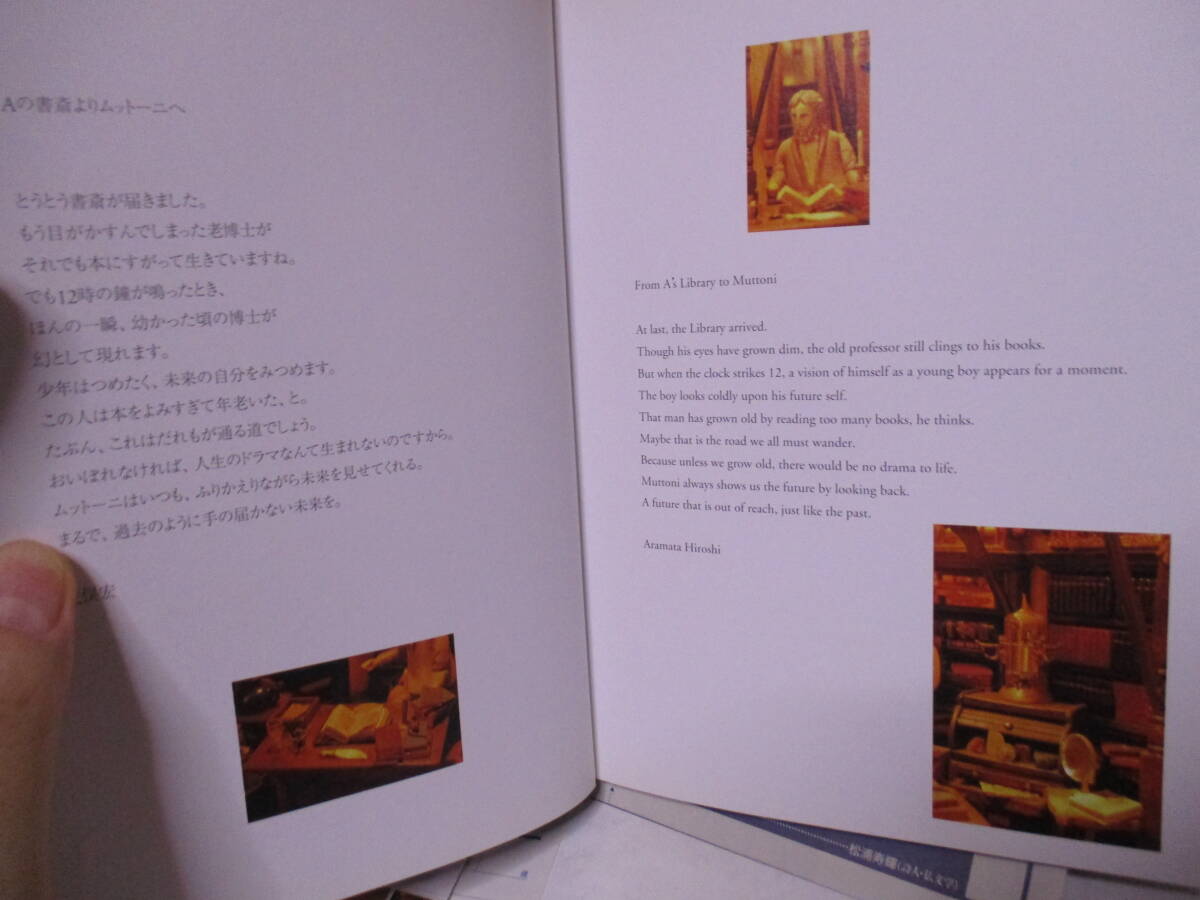 Aの書斎よりムットーニへ
とうとう書斎が届きました。
もう目がかすんでしまった老博士が
それでも本にすがって生きていますね。
でも12時の鐘が鳴ったとき、
ほんの一瞬、幼かった頃の博士が
幻として現れます。
少年はつめたく、未来の自分をみつめます。
この人は本をよみすぎて年老いた、と。
たぶん、これはだれもが通る道でしょう。
おいぼれなければ、人生のドラマなんて生まれないのですから。
ムットーニはいつも、ふりかえりながら未来を見せてくれる。
まるで、過去のように手の届かない未来を。
From A's Library to Muttoni
At last, the Library arrived.
Though his eyes have grown dim, the old professor still clings to his books.
But when the clock strikes 12, a vision of himself as a young boy appears for a moment.
The boy looks coldly upon his future self.
That man has grown old by reading too many books, he thinks.
Maybe that is the road we all must wander.
Because unless we grow old, there would be no drama to life.
Muttoni always shows us the future by looking back.
A future that is out of reach, just like the past.
Aramata Hiroshi
松浦寿輝(詩人・仏文学)